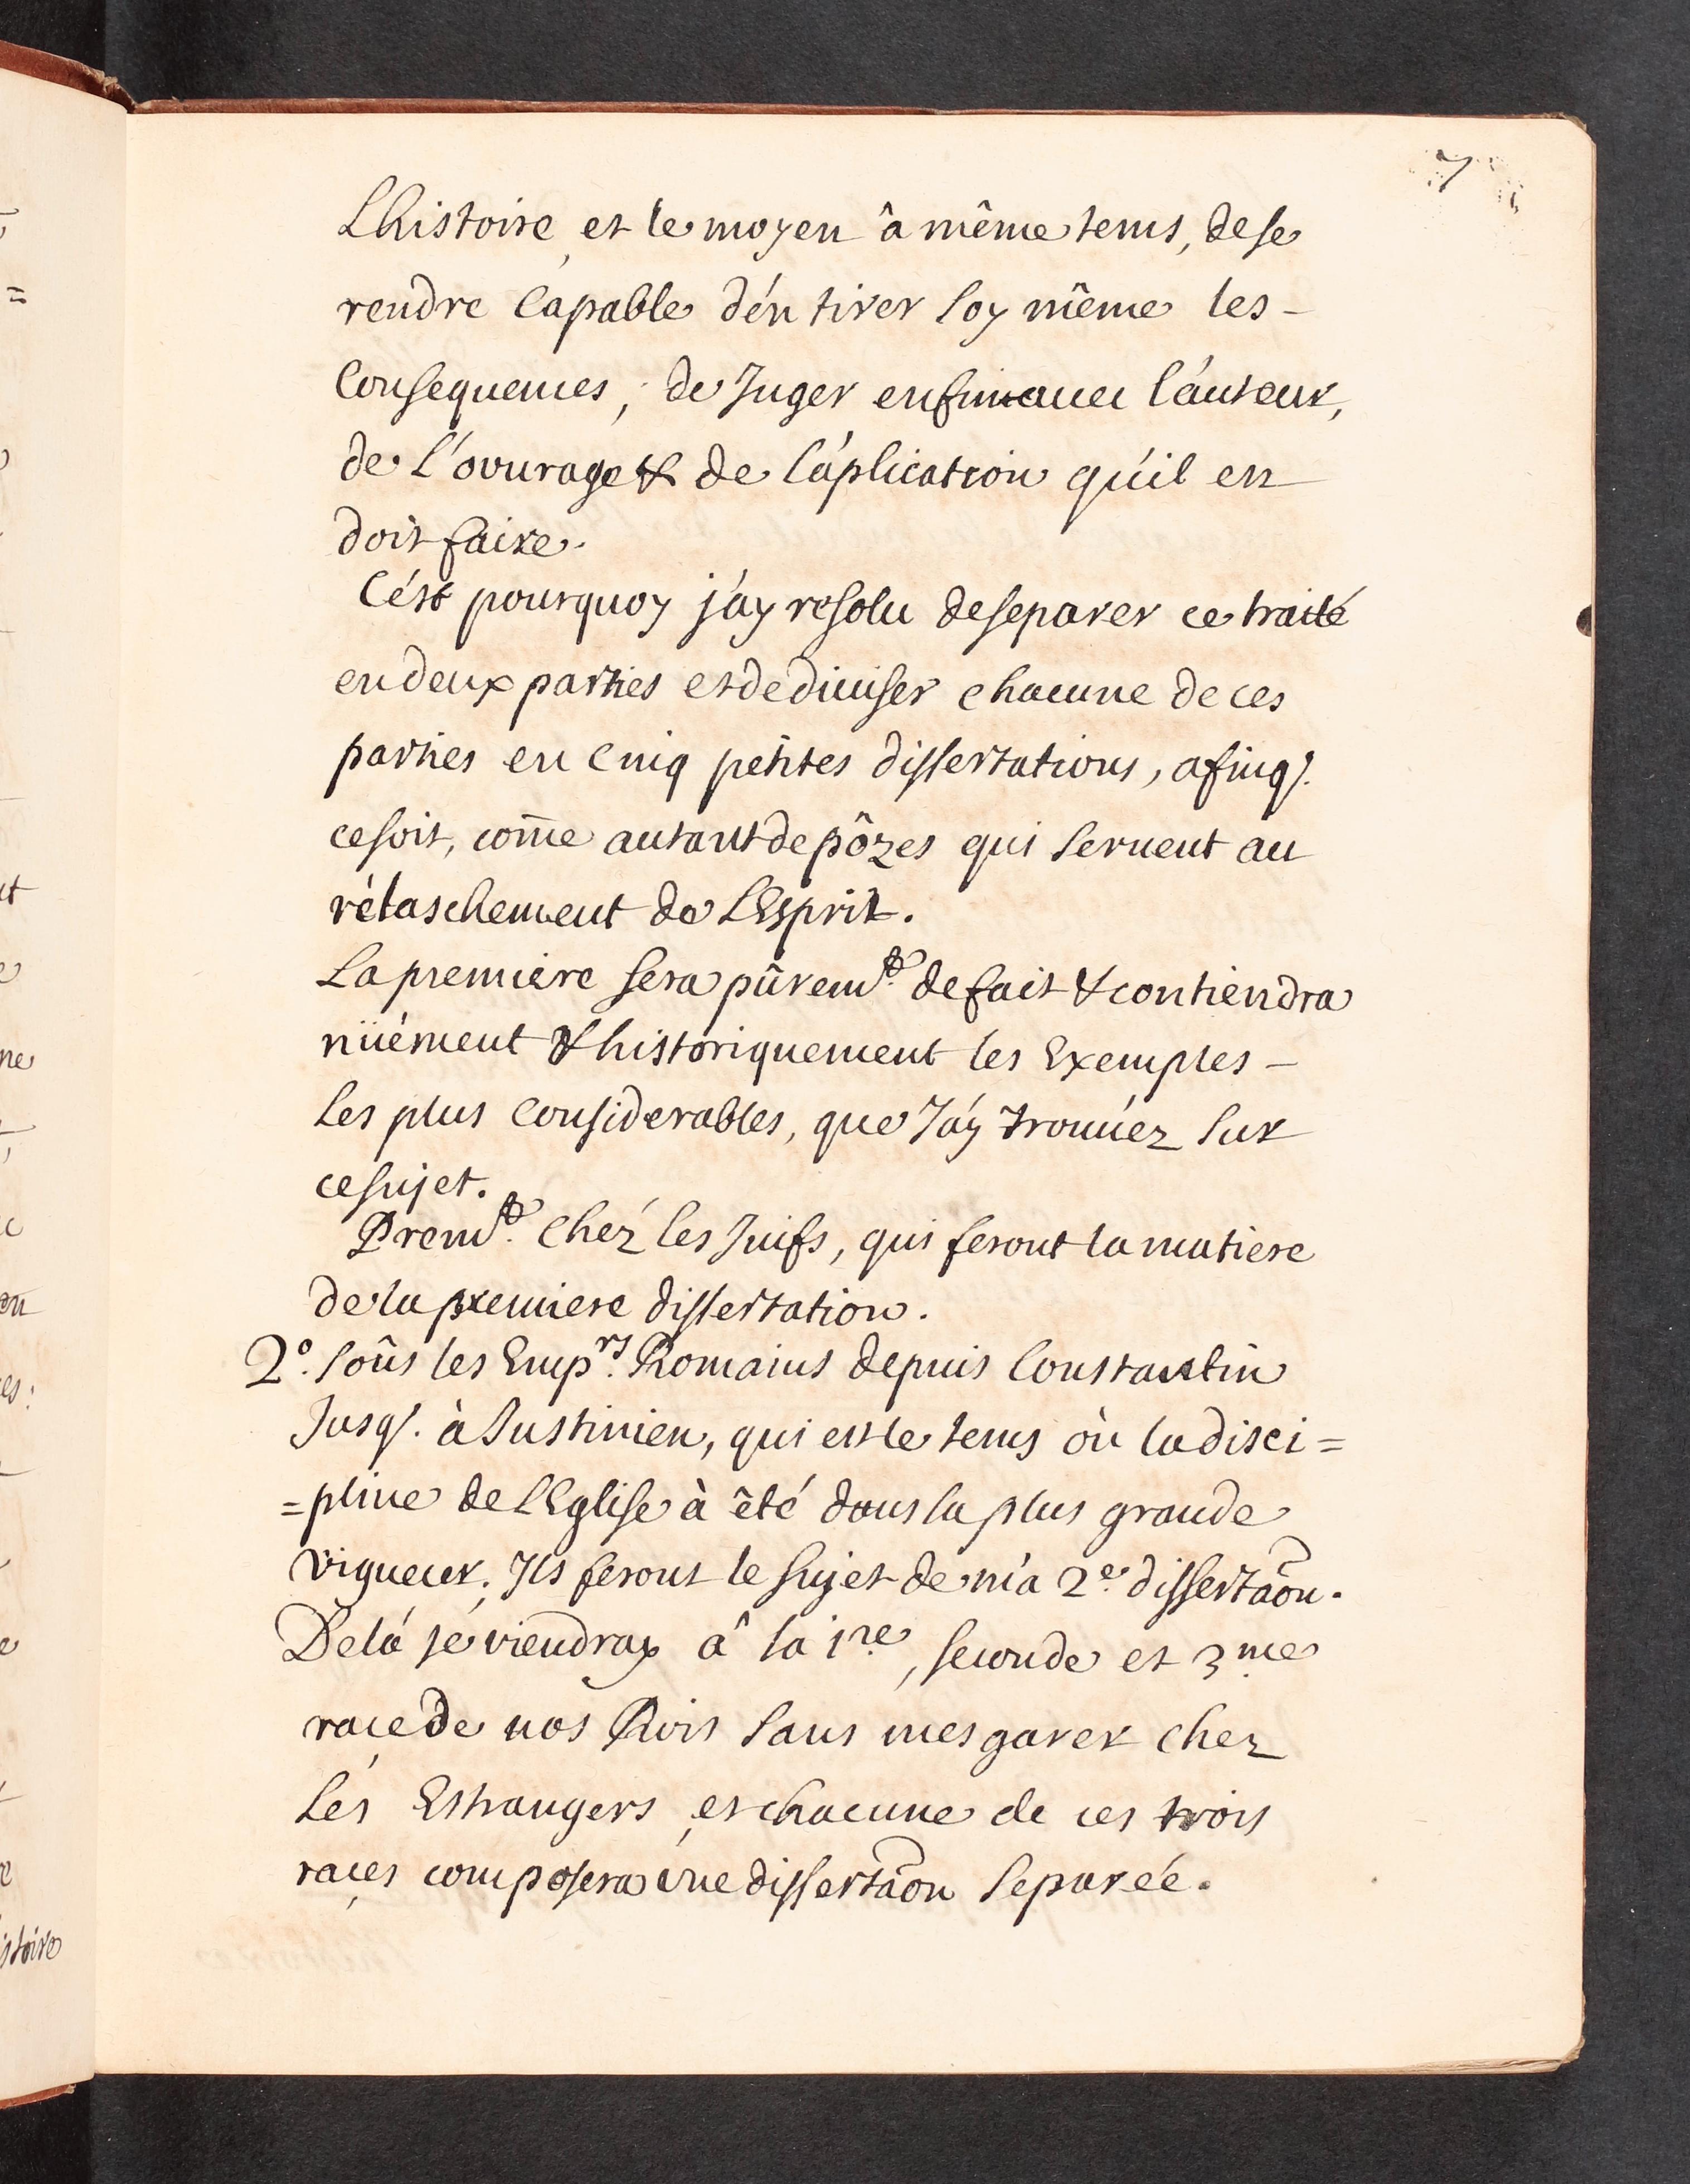 7
Lhistoire, et le moyen â même tems, de se
rendre Capable dén tirer soy même les -
Consequences, de Juger enfin auec láuteur,
de l'ouurage & de láplication quil en
doit faire.
Cést pourquoy jáy resolu de separer ce traité
en deux parties et de diuiser chacune de ces
parties en Cinq petites dissertations, afin q.
ce soit, com̄e autant de pôzes qui seruent au
rélaschement de LEsprit.
La premiere sera pûremt. de fait & contiendra
nüément & historiquement les Exemples -
les plus Considerables, que Jáy trouuéz sur
ce sujet.
Premt. Chez les Juifs, qui feront la matiere
de la premiere dissertation.
2°. soûs les Emprs. Romains depuis Constantin
Jusq. à Justinien, qui est le tems où la disci=
=pline de LEglise à êté dans sa plus grande
vigueur. Ils feront le sujet de ma 2e. dissertaôn.
De lá je viendray â la 1re, seconde et 3me
race de nos Rois sans mesgarer chez
les Estrangers, et chacune de ces trois
races composera vne dissertaôn separée.